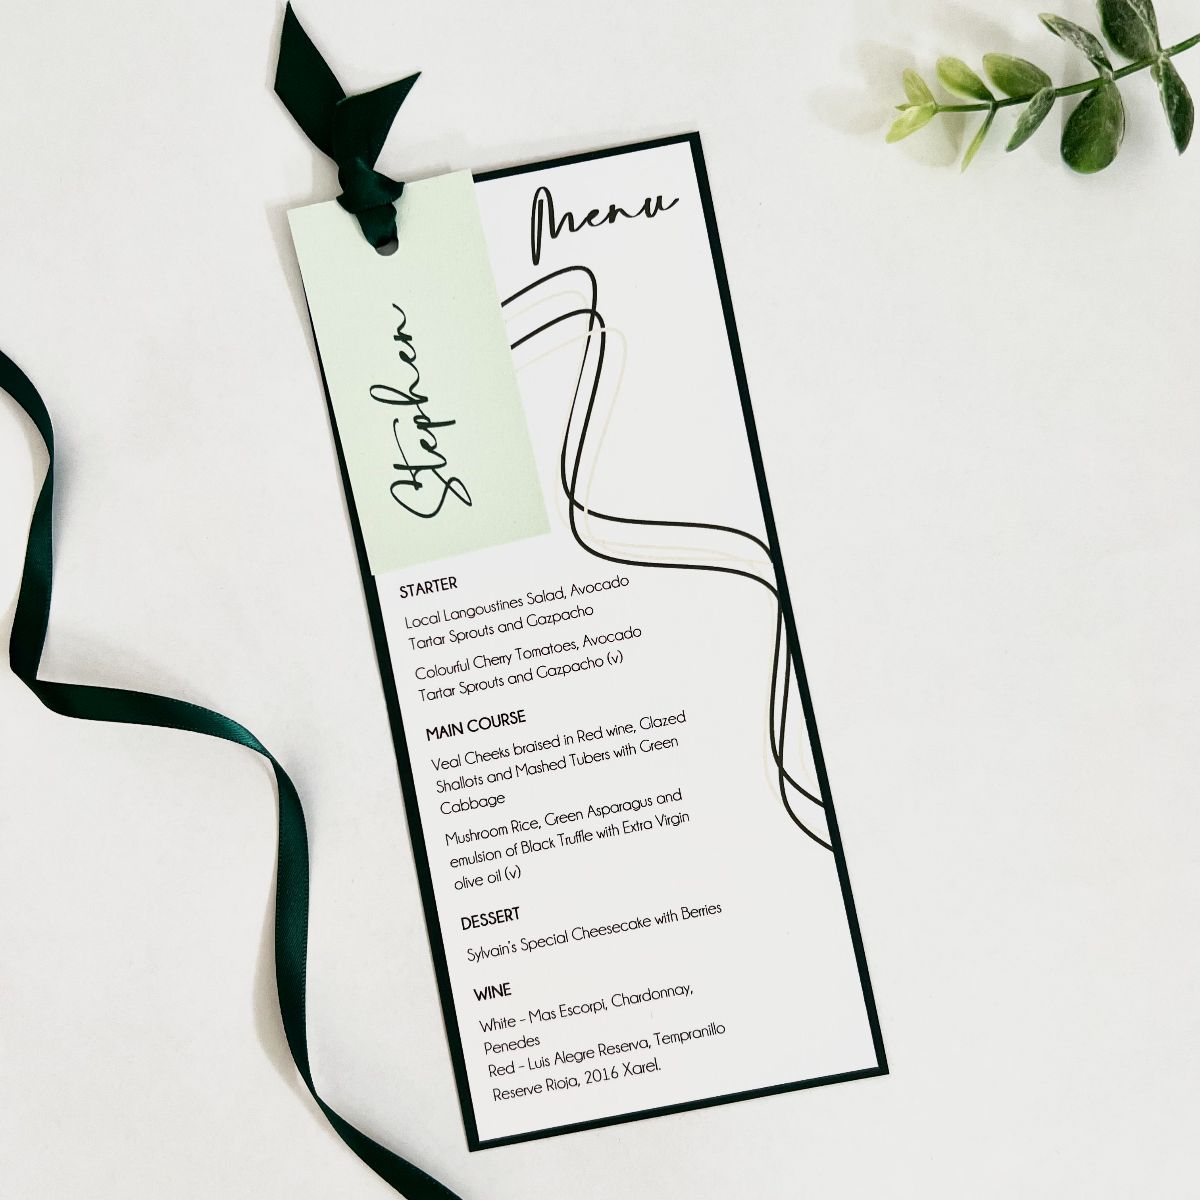 Menu
Stephen
STARTER
Local Langoustines Salad, Avocado
Tartar Sprouts and Gazpacho
Colourful Cherry Tomatoes, Avocado
Tartar Sprouts and Gazpacho (v)
MAIN COURSE
Veal Cheeks braised in Red wine, Glazed
Shallots and Mashed Tubers with Green
Cabbage
Mushroom Rice, Green Asparagus and
emulsion of Black Truffle with Extra Virgin
olive oil (v)
DESSERT
Sylvain's Special Cheesecake with Berries
WINE
White - Mas Escorpi, Chardonnay,
Penedes
Red - Luis Alegre Reserva, Tempranillo
Reserve Rioja, 2016 Xarel.